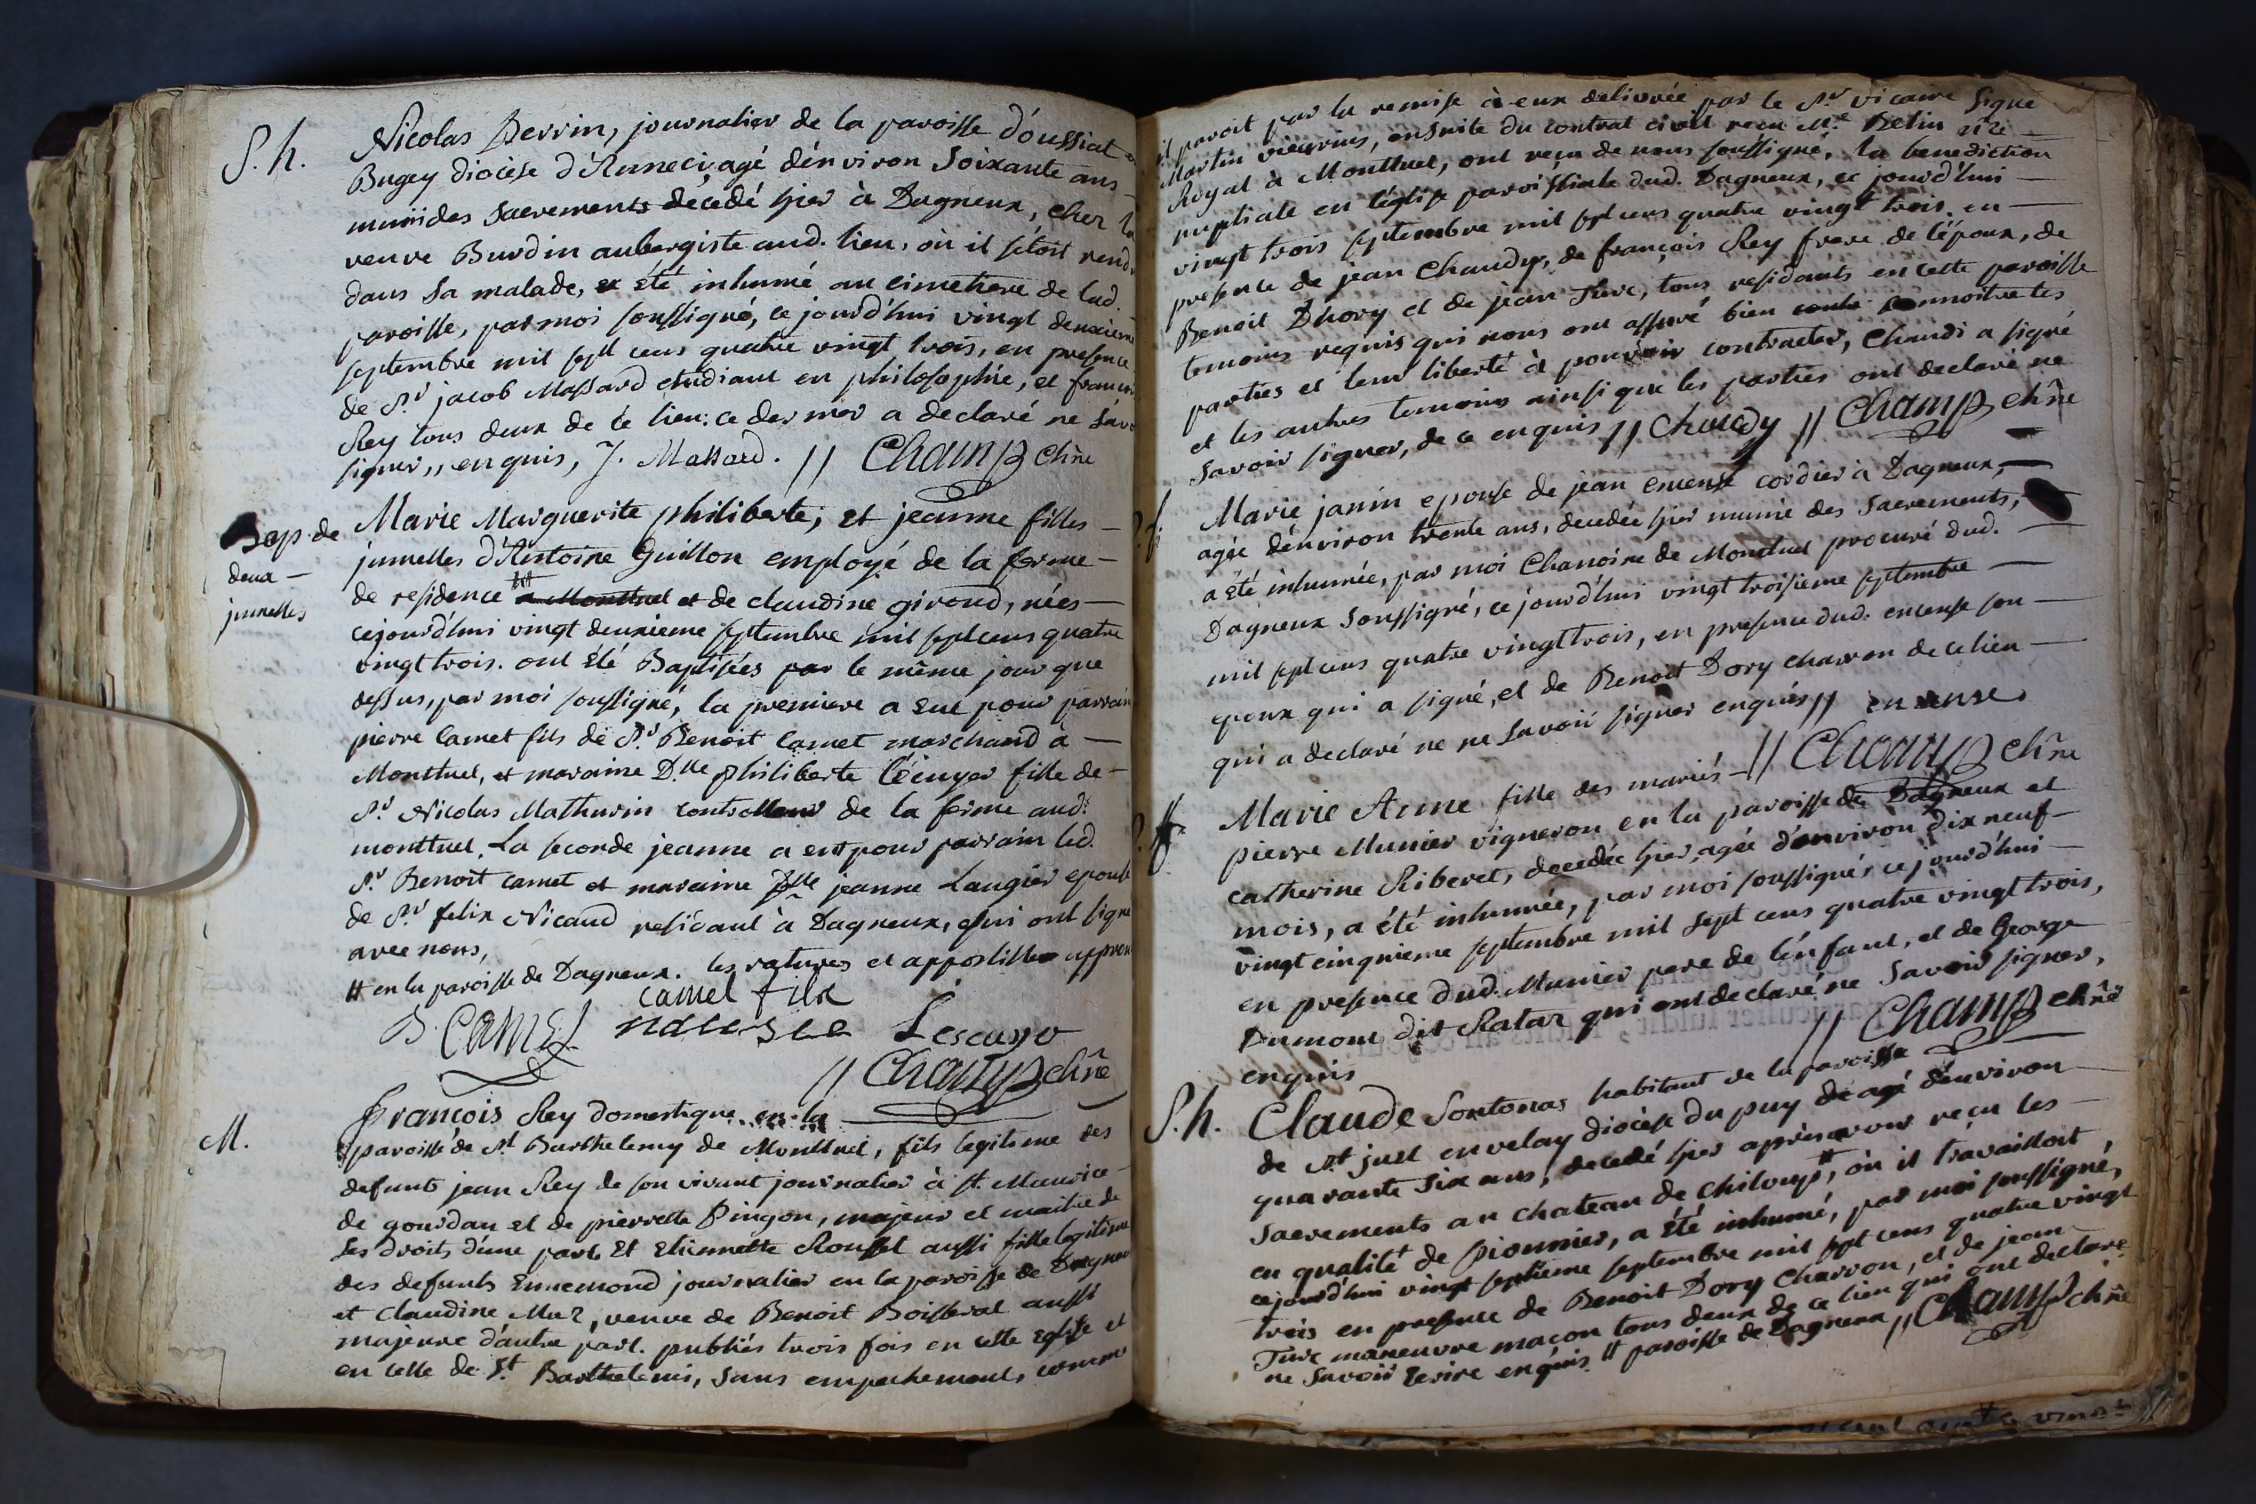 S. h.
Nicolas Perrin, journalier de la paroisse d'oussiat en
Bugey diocèse d'Anneci, agé d'environ Soixante ans
muni des Sacrements décédé hier à Dagneux, chez la
veuve Burdin aubergiste aud. lieu, où il s'étoit rendu
dans Sa malade, a été inhumé au cimetiere de lad.
paroisse, par moi soussigné, ce jourd'hui vingt deuxieme
septembre mil sept cens quatre vingt trois, en presence
de Sr jacob Massard etudiant en philosophie, et francois
Rey tous deux de ce lieu: ce dernier a declaré ne Savoir
signer,, enquis, J. Massard. // Champ chñe
Bap. de
deux
jumelles
Marie Marguerite philiberte, et jeanne filles
jumelles d'Antoine Guillon employé de la ferme
de residence # a Montluel et de claudine giroud, nées
cejourd'hui vingt deuxieme septembre mil sept cens quatre
vingt trois. ont été Baptisées par le même jour que
dessus, par moi soussigné, la premiere a eue pour parrain
pierre Camet fils de Sr Benoit Camet marchand à
Montluel, et maraine D.lle philiberte l'écuyer fille de
Sr Nicolas Mathurin contrôlleur de la ferme aud.
montluel. La seconde jeanne a eut pour parrain led.
Sr Benoit camet et maraine D.lle jeanne Laugier epouse
de Sr felix Nicaud residant à Dagneux, qui ont signé
avec nous,
# en la paroisse de Dagneux. les ratures et appostilles approuv
camet fils
B. CAMET Lescuyo
// Champ chñe
M.
François Rey domestique en la
paroisse de St Barthelemy de Montluel, fils legitime des
defunts jean Rey de son vivant journalier à St. Maurice
de gourdan et de pierrette Pingon, majeur et maitre de
Ses droits d'une part. Et Etiennette Roussel aussi fille legitime
des defunts Ennemond journalier en la paroisse de Dagneux
et Claudine Mur, veuve de Benoit Boisserat aussi
majeure d'autre part. publiés trois fois en cette Eglise et
en celle de St Barthelemi, Sans empechement, comme
il paroit par la remise à eux delivrée par le Sr vicaire Signé
Martin vicarius, ensuite du contrat civil reçu Me Belin nre
Royal à Montluel, ont reçu de nous soussigné, la benediction
nuptiale en l'église paroissiale dud. Dagneux, ce jourd'hui
vingt trois septembre mil sept cens quatre vingt trois, en
presence de jean Chaudy, de françois Rey frere de l'époux, de
Benoit Dhory et de jean Ture, tous residants en cette paroisse
temoins requis qui nous ont assuré bien connoitre les
parties et leur liberté à pouvoir contracter, Chaudi a signé
et les autres temoins ainsi que les parties ont declaré ne
Savoir signer, de ce enquis // Chaudy // Champ chñe
Marie janin epouse de jean encense cordier à Dagneux,
agée d'environ trente ans, decedée hier munie des Sacrements,
a été inhumée, par moi Chanoine de Montluel procuré dud.
Dagneux soussigné, ce jourd'hui vingt troisieme septembre
mil sept cens quatre vingt trois, en presence dud. encense son
epoux qui a signé, et de Benoit Dory charron de ce lieu
qui a declaré ne ne Savoir signer enquis // encense
// Champ chñe
Marie Anne fille des mariés
pierre Munier vigneron en la paroisse de Dagneux et
catherine Riberet, decedée hier, agée d'environ dix neuf
mois, a été inhumée, par moi soussigné, ce jourd'hui
vingt cinquieme septembre mil sept cens quatre vingt trois,
en presence dud. Munier pere de l'enfant, et de George
Dumont dit Ratar qui ont declaré ne Savoir signer,
enquis // Champ chñe
S. h.
Claude Sontonas habitant de la paroisse
de St just en velay diocèse du puy de agé d'environ
quarante Six ans, decedé hier après avoir reçu les
Sacrements au chateau de chiloup #, où il travailloit
en qualité de pionnier, a été inhumé, par moi soussigné,
cejourd'hui vingt septieme septembre mil sept cens quatre vingt
trois en presence de Benoit Dory charron, et de jean
Ture maneuvre maçon tous deux de ce lieu qui ont declaré
ne Savoir ecrire enquis # paroisse de Dagneux // Champ chñe